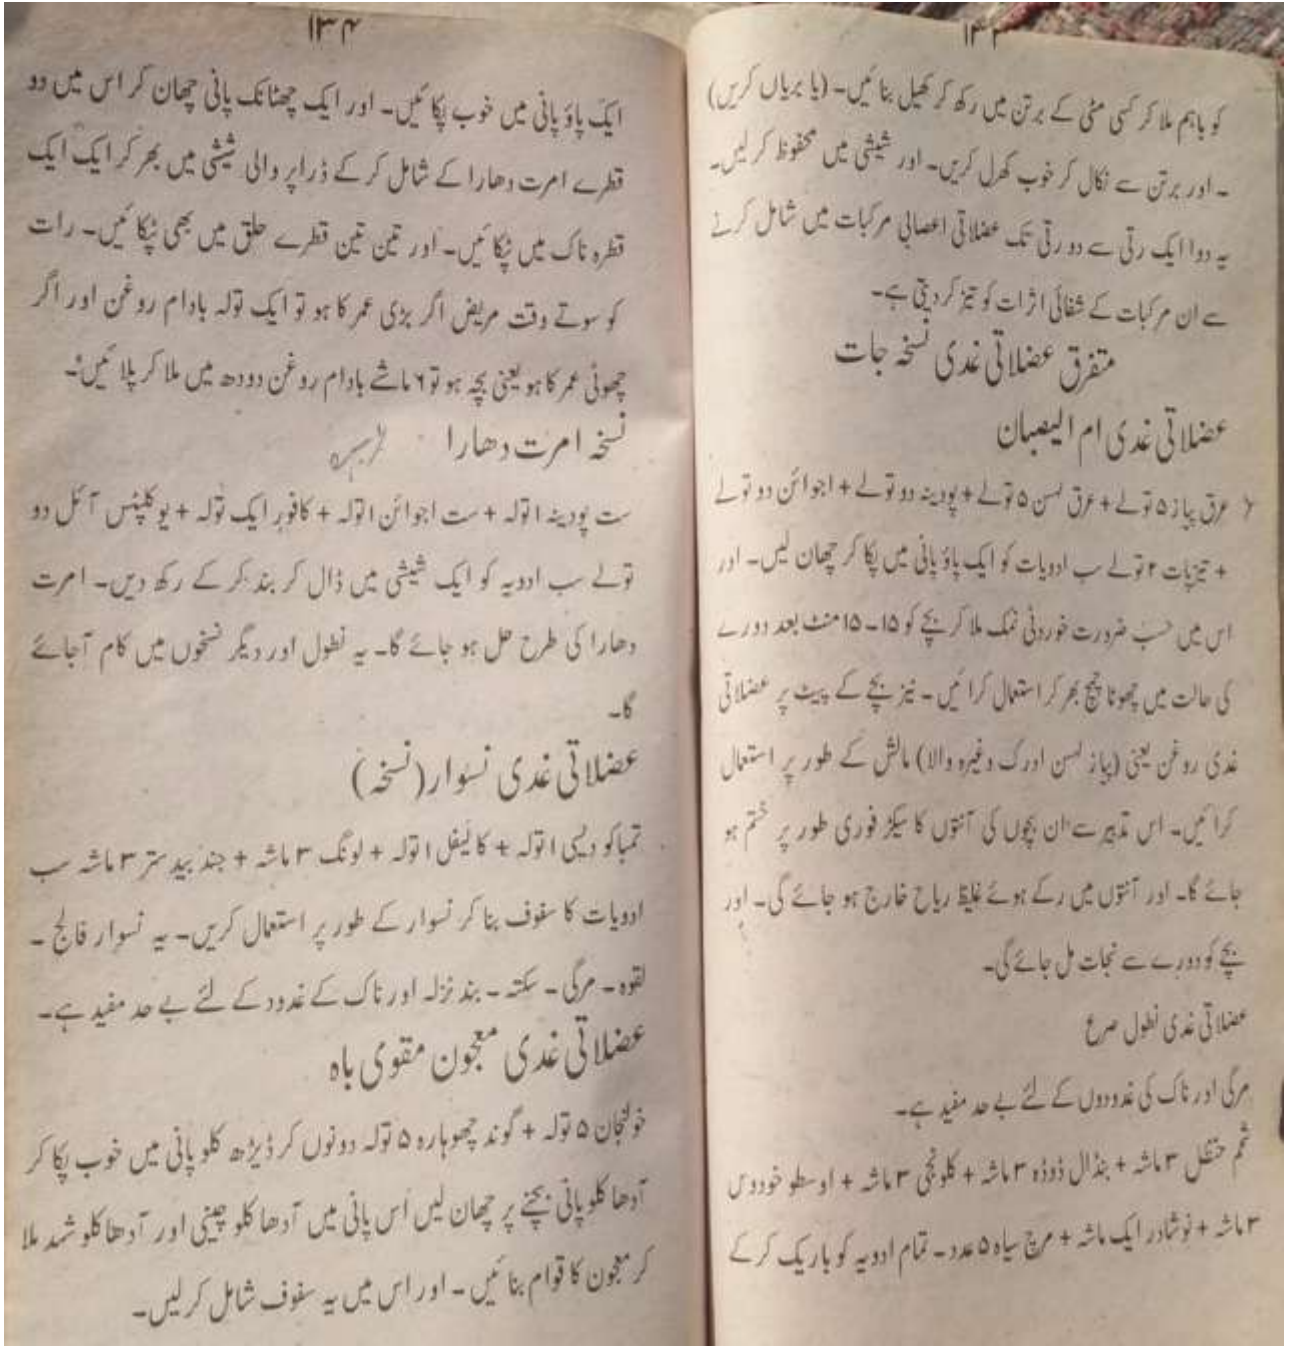 ۱۳۳
کو باہم ملا کر کسی مٹی کے برتن میں رکھ کر کھیل بنائیں۔ (یا بریاں کریں)
۔ اور برتن سے نکال کر خوب کھرل کریں۔ اور شیشی میں محفوظ کر لیں۔
یہ دوا ایک رتی سے دو رتی تک عضلاتی اعصابی مرکبات میں شامل کرنے
سے ان مرکبات کے شفائی اثرات کو تیز کر دیتی ہے۔
متفرق عضلاتی غدی نسخہ جات
عضلاتی غدی ام الیصبان
عرق پیاز ۵ تولے + عرق لسن ۵ تولے + پودینہ دو تولے + اجوائن دو تولے
+ تیزپات ۲ تولے سب ادویات کو ایک پاؤ پانی میں پکا کر چھان لیں۔ اور
اس میں حسب ضرورت خوردنی نمک ملا کر بچے کو ۱۵۔۱۵ منٹ بعد دورے
کی حالت میں چھوٹا چمچ بھر کر استعمال کرائیں۔ نیز بچے کے پیٹ پر عضلاتی
غدی روغن یعنی (پیاز لسن ادرک وغیرہ والا) مالش کے طور پر استعمال
کرائیں۔ اس تدبیر سے ان بچوں کی آنتوں کا سیکڑ فوری طور پر ختم ہو
جائے گا۔ اور آنتوں میں رکے ہوئے غلیظ ریاح خارج ہو جائے گی۔ اور
بچے کو دورے سے نجات مل جائے گی۔
عضلاتی غدی نطول صرع
مرگی اور ناک کی غدودوں کے لئے بے حد مفید ہے۔
تخم حنظل ۳ ماشہ + بنڈال ڈوڈہ ۳ ماشہ + کلونجی ۳ ماشہ + اوسطو خودوس
۳ ماشہ + نوشادر ایک ماشہ + مرچ سیاہ ۵ عدد۔ تمام ادویہ کو باریک کر کے
۱۳۴
ایک پاؤ پانی میں خوب پکائیں۔ اور ایک چھٹانک پانی چھان کر اس میں دو
قطرے امرت دھارا کے شامل کر کے ڈراپر والی شیشی میں بھر کر ایک ایک
قطرہ ناک میں ٹپکائیں۔ اور تین تین قطرے حلق میں بھی ٹپکائیں۔ رات
کو سوتے وقت مریض اگر بڑی عمر کا ہو تو ایک تولہ بادام روغن اور اگر
چھوٹی عمر کا ہو یعنی بچہ ہو تو ۶ ماشے بادام روغن دودھ میں ملا کر پلائیں۔
نسخہ امرت دھارا
ست پودینہ ۱ تولہ + ست اجوائن ۱ تولہ + کافور ایک تولہ + یوکلپٹس آئل دو
تولے سب ادویہ کو ایک شیشی میں ڈال کر بند کر کے رکھ دیں۔ امرت
دھارا کی طرح حل ہو جائے گا۔ یہ نطول اور دیگر نسخوں میں کام آجائے
گا۔
عضلاتی غدی نسوار (نسخہ)
تمباکو دیسی ۱ تولہ + کائیفل ۱ تولہ + لونگ ۳ ماشہ + جند بیدستر ۳ ماشہ سب
ادویات کا سفوف بنا کر نسوار کے طور پر استعمال کریں۔ یہ نسوار فالج ۔
لقوہ ۔ مرگی ۔ سکتہ ۔ بند نزلہ اور ناک کے غدود کے لئے بے حد مفید ہے۔
عضلاتی غدی معجون مقوی باہ
خولنجان ۵ تولہ + گوند چھوہارہ ۵ تولہ دونوں کر ڈیڑھ کلو پانی میں خوب پکا کر
آدھا کلو پانی بچنے پر چھان لیں اس پانی میں آدھا کلو چینی اور آدھا کلو شہد ملا
کر معجون کا قوام بنائیں۔ اور اس میں یہ سفوف شامل کر لیں۔